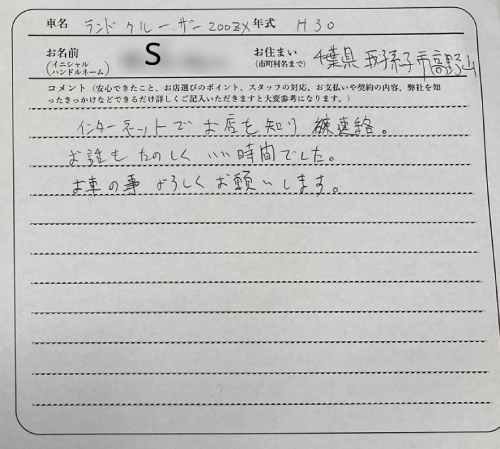 車名 ランドクルーザー200ZX 年式 H30
お名前 S お住まい 千葉県 我孫子市高野山
(イニシャル (市町村名まで)
ハンドルネーム)
コメント(安心できたこと、お店選びのポイント、スタッフの対応、お支払いや契約の内容、弊社を知
ったきっかけなどできるだけ詳しくご記入いただきますと大変参考になります。)
インターネットでお店を知り 連絡。
お話も たのしく いい時間でした。
お車の事 よろしくお願いします。